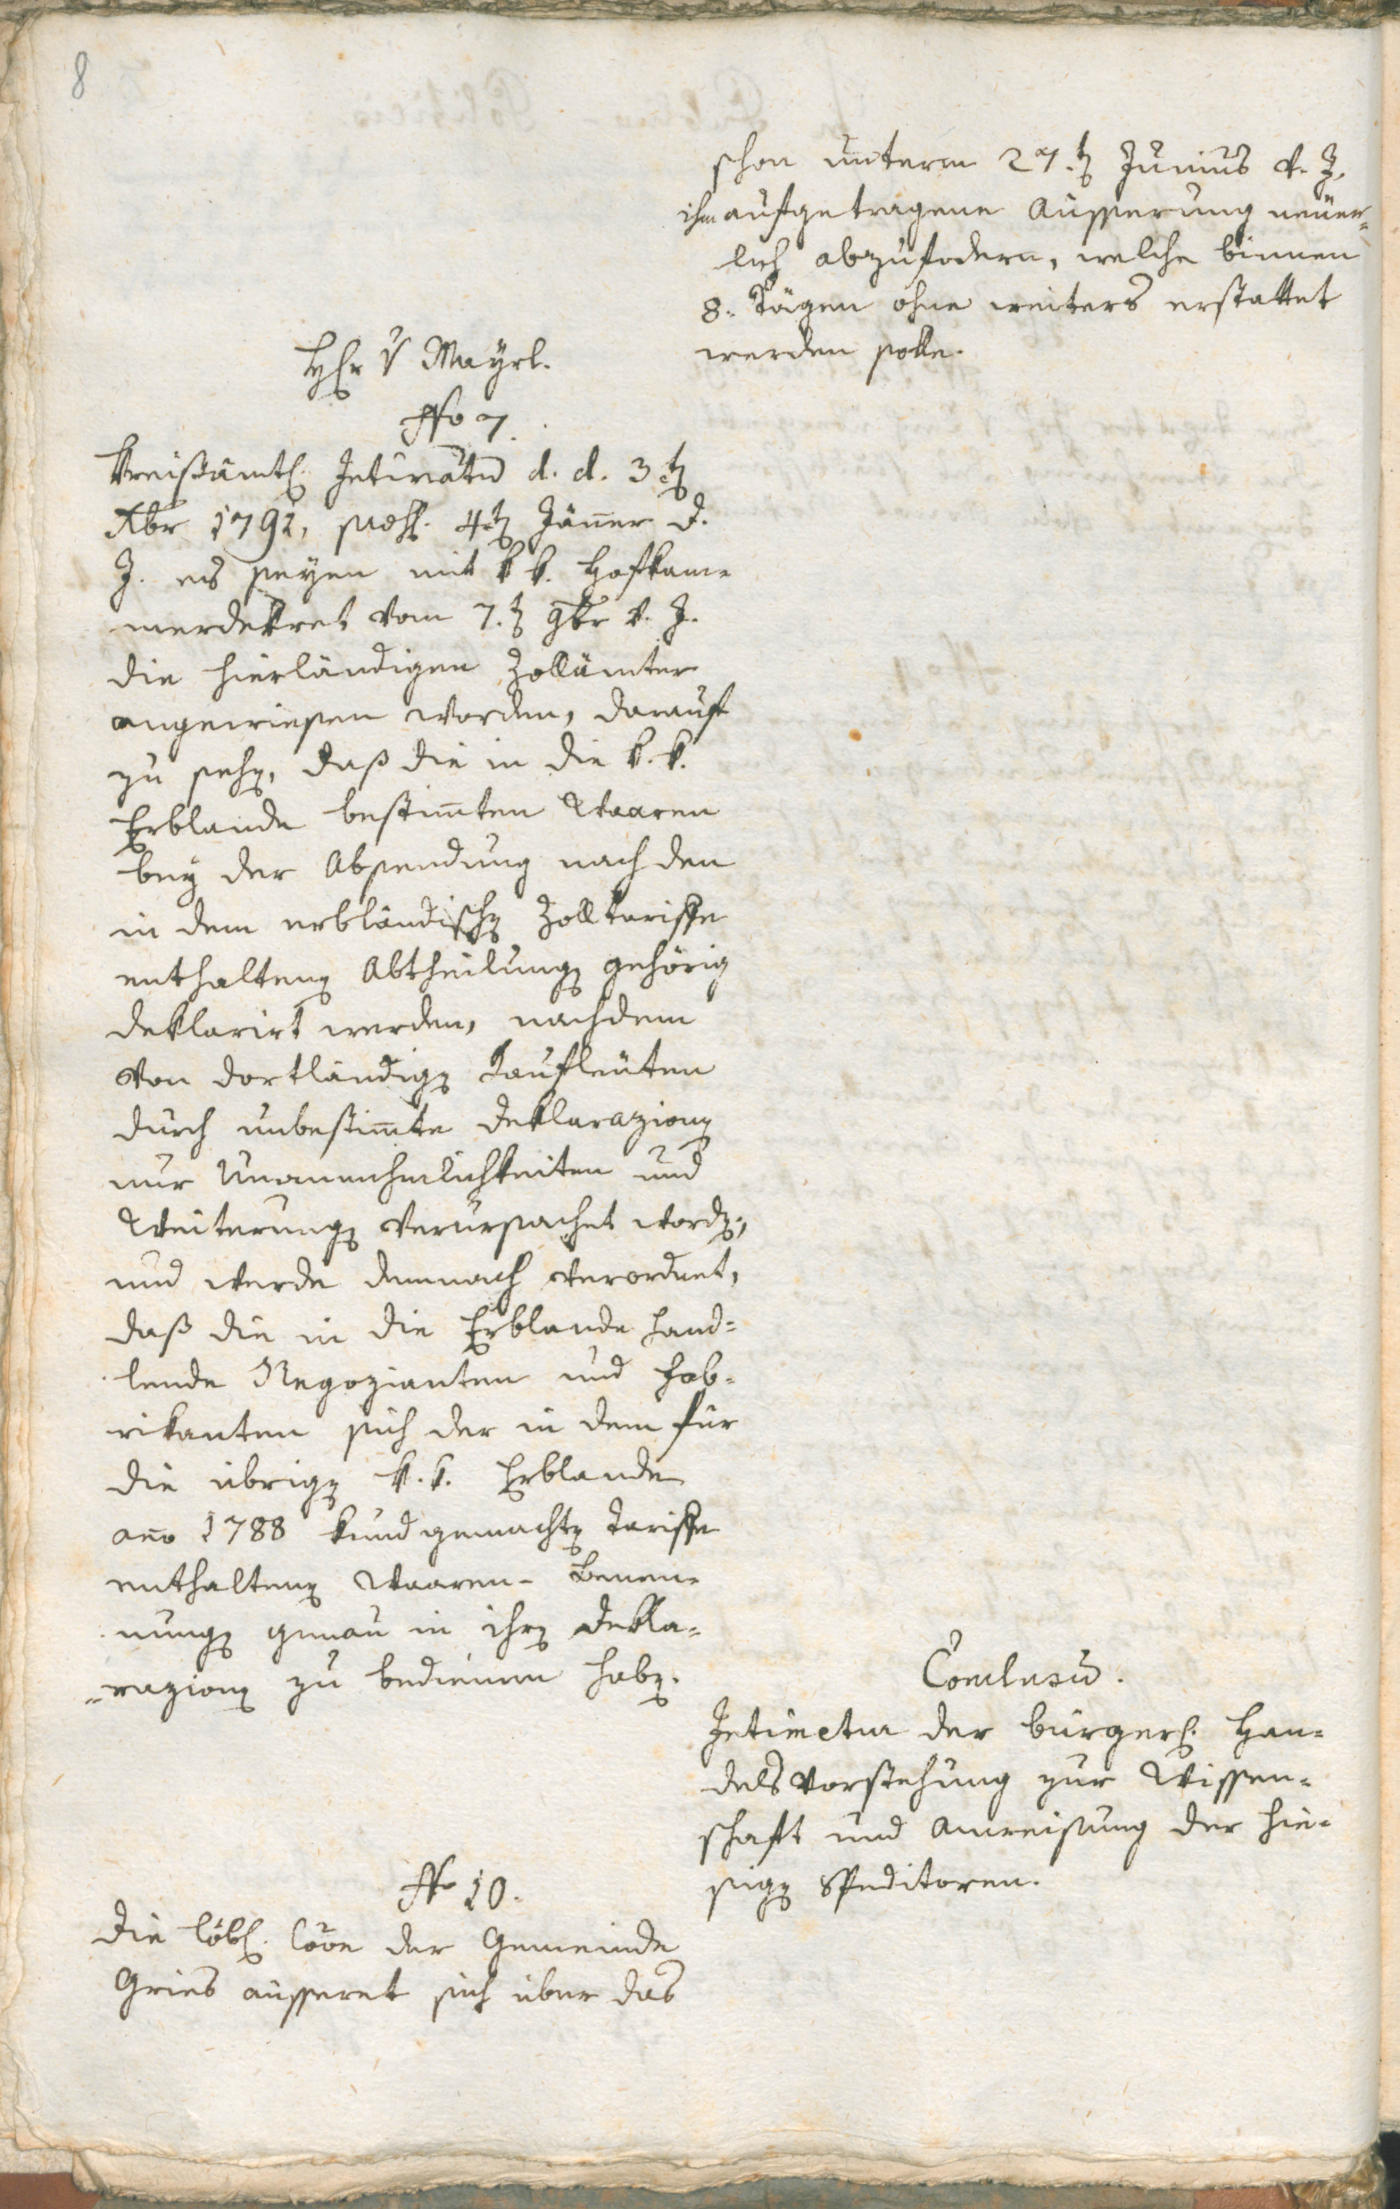 8
schon unterm 27.ten Junius v. J.
ihm aufgetragene Äusserung neuer-
lich abzufodern, welche binnen
8. Tägen ohne weiters erstattet
werden solle.
Hr v Mayrl.
No 7.
Kreisämtl. Intimatū d. d. 3ten
Xbr 1791, 4ten Jäner d.
J. es seyen mit k k. Hofkam-
merdekret vom 7.ten 9br v. J.
die hierländigen Zollämter
angewiesen worden, darauf
zu sehen, daß die in die k. k.
Erblande bestim̄ten Waaren
bey der Absendung nach den
in dem erbländischen Zolltariffe
enthaltenen Abtheilungen gehörig
deklarirt werden, nachdem
von dortländigen Kaufleuten
durch unbestim̄te Deklarazionen
nur Unannehmlichkeiten und
Weiterungen verursachet worden,
und werde demnach verordnet,
daß die in die Erblande hand-
lende Negozianten und Fab-
rikanten sich der in dem für
die übrigen k. k. Erblande
ano 1788 kund gemachten Tariffe
enthaltenen Waaren-Benen-
nungen genau in ihren Dekla-
razionen zu bedienen haben.
Conclusū.
Intimetur der bürgerl. Han-
delsvorstehung zur Wissen-
schaft und Anweisung der hie-
sigen Speditoren.
No 10.
Die löbl. Cōōn der Gemeinde
Gries äusseret sich über das